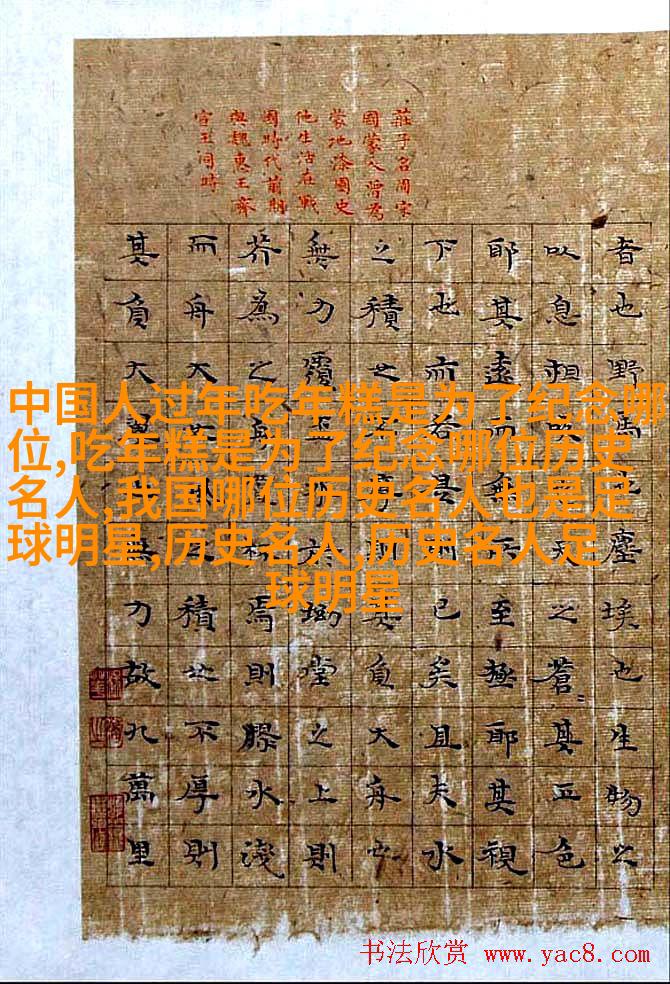 莊子名周宋
國蒙人曾為
蒙地漆園史
他生活在戰
國時代前期
與魏惠王齊
宣王同時
者也野馬也塵埃也生物之
以息相吹也天之蒼〻其正色
耶其遠而無所至極耶其視
下也亦若是則已矣且夫水
之積也不厚則其負大舟也
無力覆杯水於坳堂之上則
芥為之舟置杯焉則膠水淺
而舟大也風之積也不厚則
其負大翼也無力故九萬里
中国人过年吃年糕是为了纪念哪
位,吃年糕是为了纪念哪位历史
名人,我国哪位历史名人也是足
球明星,历史名人,历史名人足
球明星
书法欣赏 www.yac8.com